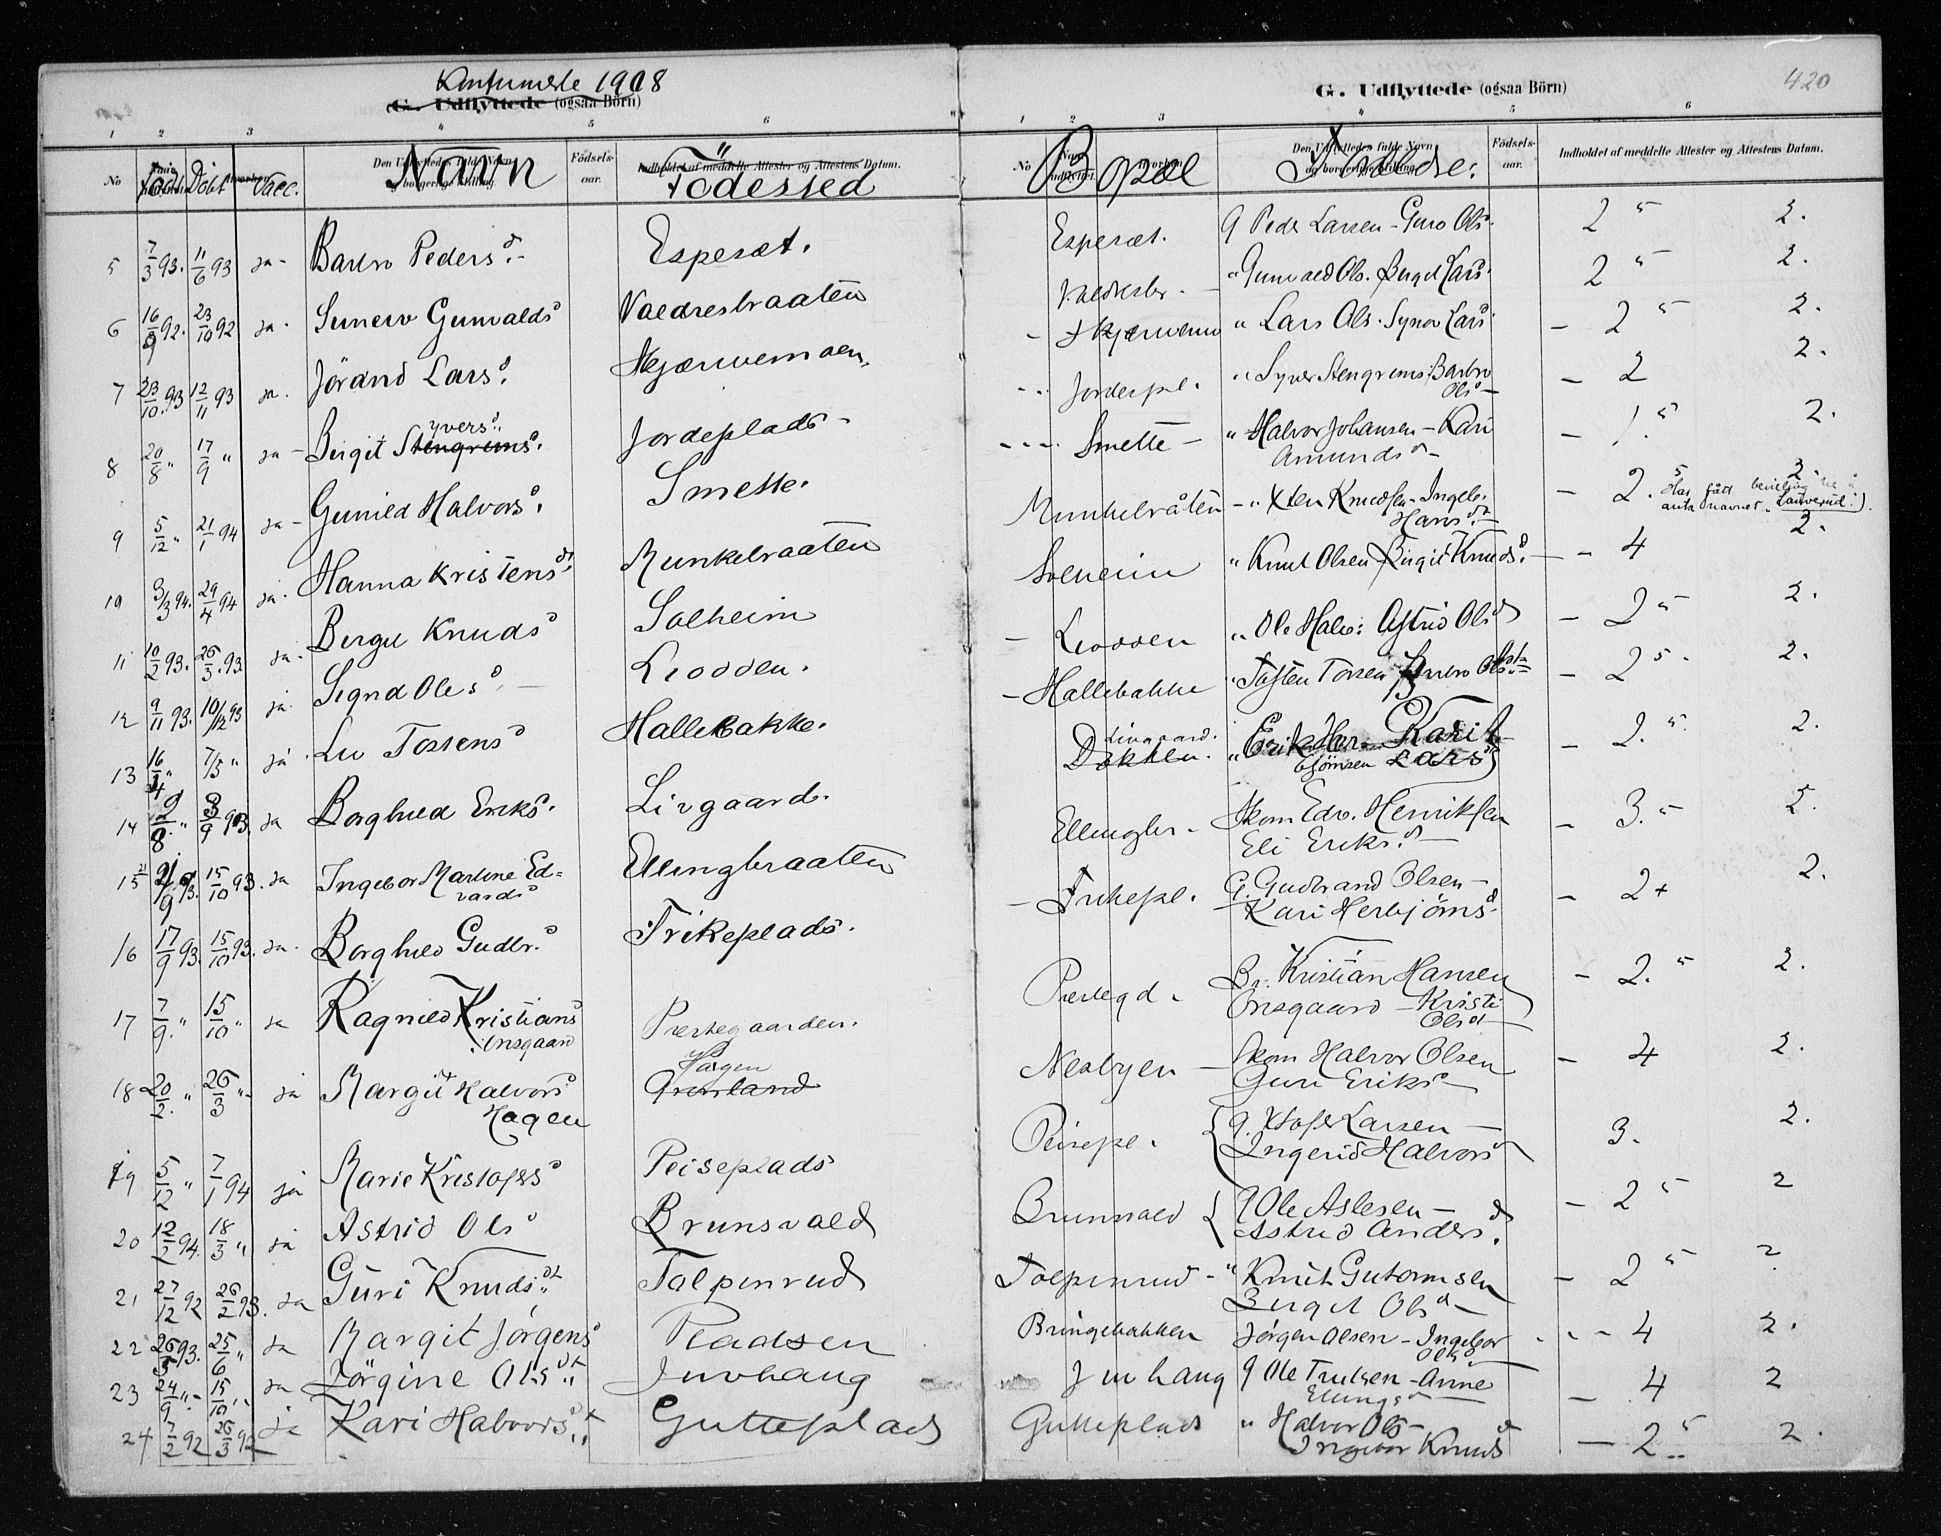 Konfirmerte 1908
G. Udflyttede (ogsaa Börn)
1 2 3 4 5 6
No Född Döbt Vacc. Navn Fødselsaar. Födested
5 7/3 93. 11/6 93 ja - Barbro Peders d. - Esperset.
6 16/9 92. 23/10 92 ja - Gunvalds d Valdresbraaten
7 23/10 93 12/11 93 ja. Jörand Lars d. Skjærvemoen.
8 20/8 " 17/9 " ja - Birgit Syvers d. Stengrims d. Jordeplads -
9 5/12 " 21/1 94 ja - Gunild Halvors d. Smette.
10 3/3 94. 29/4 94 ja. Hanna Kristens dt. Munkelraaten
11 10/2 93. 26/3 93. ja. Knuds d Solheim
12 9/11 93. 10/12 93 ja. Sigrid Ole s d. - Liodden.
13 16/4 " 7/5 " ja. Liv Tostens d Hallebakke.
14 2/8 " 3/9 93. ja Borghild Eriks d. Livgaard.
15 21/9 93. 15/10 93. ja Ingebor Martine Ed=
vards d Ellingbraaten
16 17/9 93. 15/10 93. ja. Borghild Gudbr. d Trikeplads.
17 7/9. " 15/10 " ja Ragnild Kristians d
Onsgaard Prestegaarden.
18 20/2. " 26/3 " ja Margit Halvors d
Hagen Hagen Grønland
19 5/12 " 7/1 94 ja Marie Kristofers d Peiseplads
20 12/2 94. 18/3 " ja Astrid Ols d Brunsvald
21 27/12 92 26/2 93. ja Guri Knuds dt. Tolpinrud
22 26/5 93. 25/6 " ja Margit Jörgens d Pladsen
23 24/9 " - 15/10 " ja Jörgine Ols dt. Juvhang
24 7/2 92 26/3 92 ja Kari Halvors dt. Gutteplads
420
G. Udflyttede (ogsaa Börn)
1 2 3 4 5 6
No Bopæl Forældre: Fødselsaar. Indholdet af meddelte Attester og Attestens Datum.
Esperset. G Peder Larsen - Guro Ols d. 2 5 2.
Valdresbr. - " Gunvald Ols. Birgit Lars d. 2 5 2.
- Skjærvemo " Lars Ols. Synøv Lars d - 2 5 2.
Jordepl. " Syver Stengrims. Barbro
Ols d - - 2 2.
Smette - " Halvor Johansen - Kari
Amunds d - - 1. 5 2.
Munkelråten - " Xten Knudsen - Ingeb.
Hans dt. - - 2. 5 2.
Har fått bevilling til å
anta navnet "Lauverud").
Solheim " Knut Olsen Birgit Knuds d. - - 4 2.
- Liodden " Ole Halv. Astrid Ols d - 2 5 2.
- Hallebakke " Tosten Torsen Barbro Ols dt. - 2 5. 2.
Livgaard.
Dokklu. " Erik Kari
Lars d - 2. 5. 2.
Ellingbr. - Skom Edv. Henriksen
Eli Eriks d. - - 3. - 2.
- Trikepl. G. Gudbrand Olsen -
Kari Herbjörns d. - 2+ 2.
Prestegd. Br. Kristian Hansen
Onsgaard - Kristi
Ols d - - 2. 5 2.
Nesbyen - Skom Halvor Olsen
Guri Eriks d - - 4 2.
Peisepl. { G. Xtofer Larsen -
Ingerid Halvors d 3. 2.
Brunvald { G Ole Aslesen -
Astrid Anders d. - 2 5 2
Tolpinrud - " Knut Gutormsen
Birgit Ols d - - 2 5 2
Bringebakken Jörgen Olsen - Ingebor
Ols d - 4 2.
Juvhang G Ole Trulsen - Anne
Ellings d - - 4 2
Gutteplads " Halvor Ols -
Ingebor Knuds d - 2 5 2.